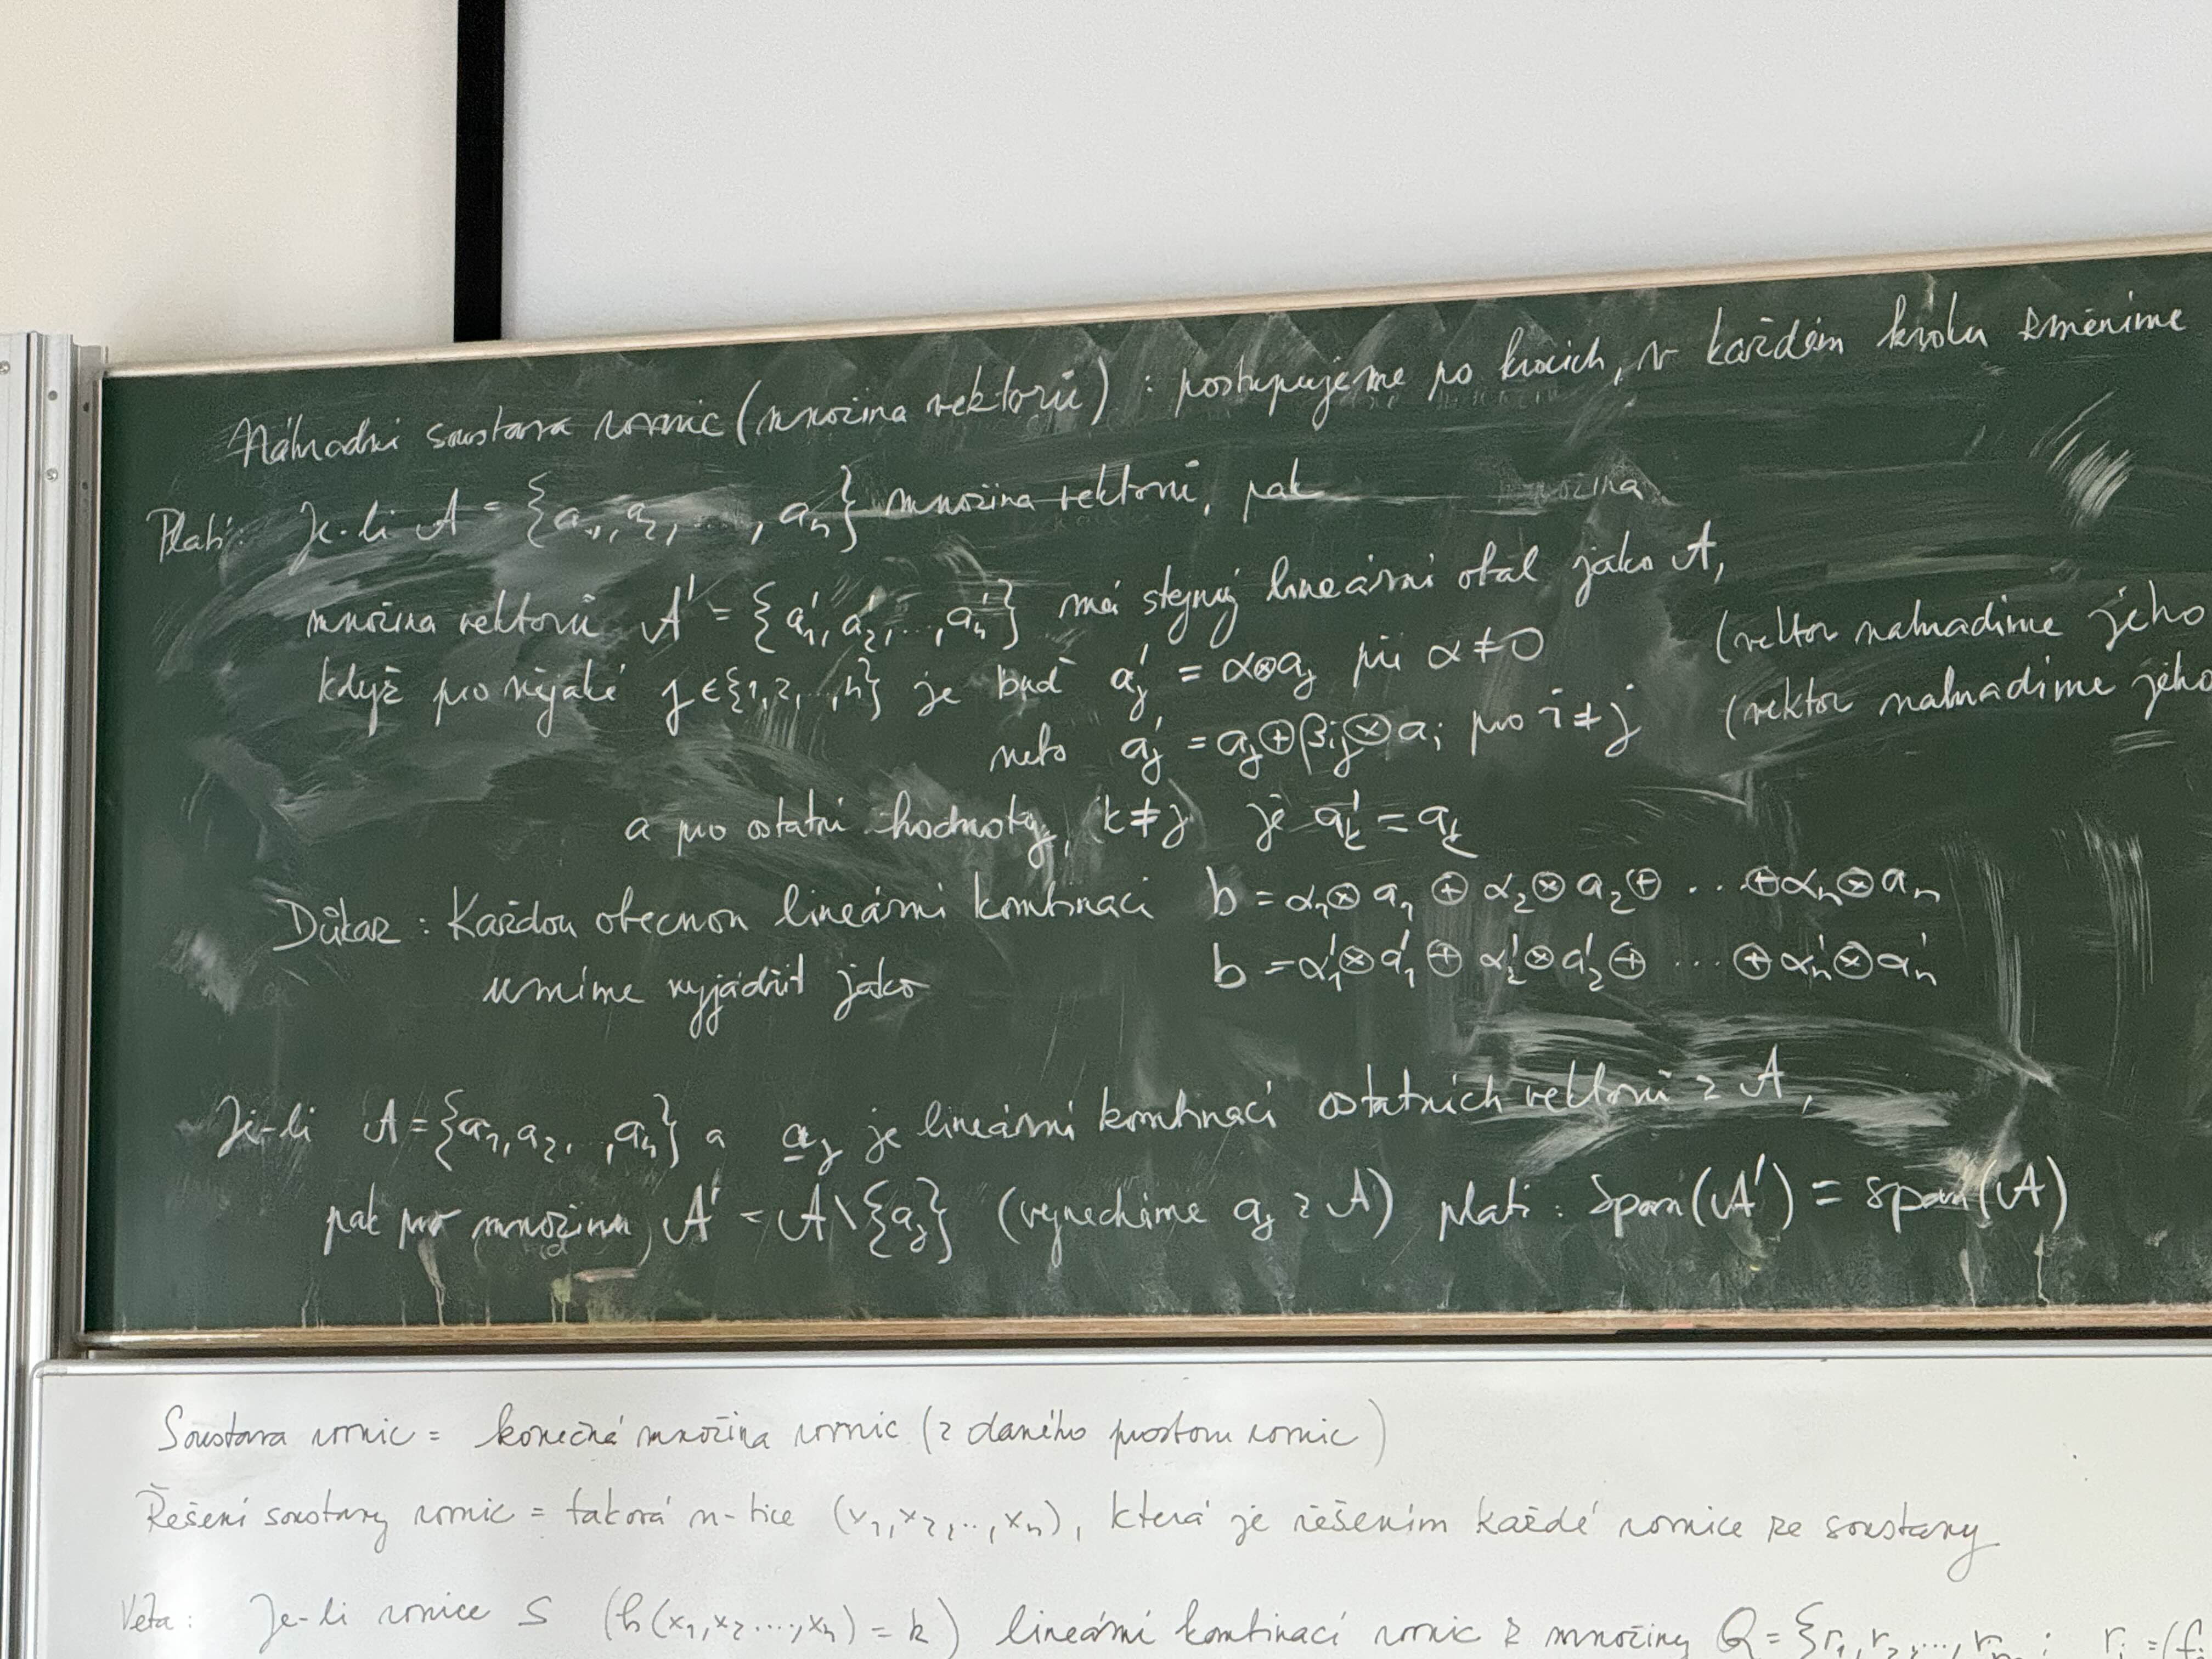 Náhradní soustava rovnic (množina vektorů) : postupujeme po krocích, v každém kroku změníme
Platí: Je-li A = {a₁, a₂, ..., aₙ} množina vektorů, pak
množina vektorů A' = {a'₁, a'₂, ..., a'ₙ} má stejný lineární obal jako A,
když pro nějaké j ∈ {1, 2, ..., n} je buď a'ⱼ = α⊗aⱼ při α ≠ 0 (vektor nahradíme jeho
nebo a'ⱼ = aⱼ ⊕ βᵢⱼ ⊗ aᵢ pro i ≠ j (vektor nahradíme jeho
a pro ostatní hodnoty, k ≠ j je a'ₖ = aₖ
Důkaz : Každou obecnou lineární kombinaci b = α₁ ⊗ a₁ ⊕ α₂ ⊗ a₂ ⊕ ... ⊕ αₙ ⊗ aₙ
umíme vyjádřit jako b = α'₁ ⊗ a'₁ ⊕ α'₂ ⊗ a'₂ ⊕ ... ⊕ α'ₙ ⊗ a'ₙ
Je-li A = {a₁, a₂, .., aₙ} a aⱼ je lineární kombinací ostatních vektorů z A,
pak pro množinu A' = A \ {aⱼ} (vynecháme aⱼ z A) platí : Span(A') = span(A)
Soustava rovnic = konečná množina rovnic (z daného prostoru rovnic)
Řešení soustavy rovnic = taková n-tice (x₁, x₂, .., xₙ), která je řešením každé rovnice ze soustavy
Věta: Je-li rovnice S (h(x₁, x₂ ..., xₙ) = k) lineární kombinací rovnic z množiny Q = {r₁, r₂, ...,